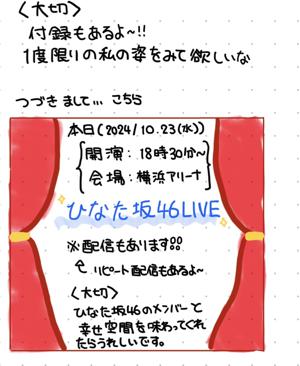 〈大切〉
付録もあるよ～!!
1度限りの私の姿をみて欲しいな
つづきまして... こちら
本日(2024/10.23(水))
開演：18時30分～
会場：横浜アリーナ
ひなた坂46LIVE
※配信もあります!!
↑リピート配信もあるよ～
〈大切〉
ひなた坂46のメンバーと
幸せ空間を味わってくれ
たらうれしいです。